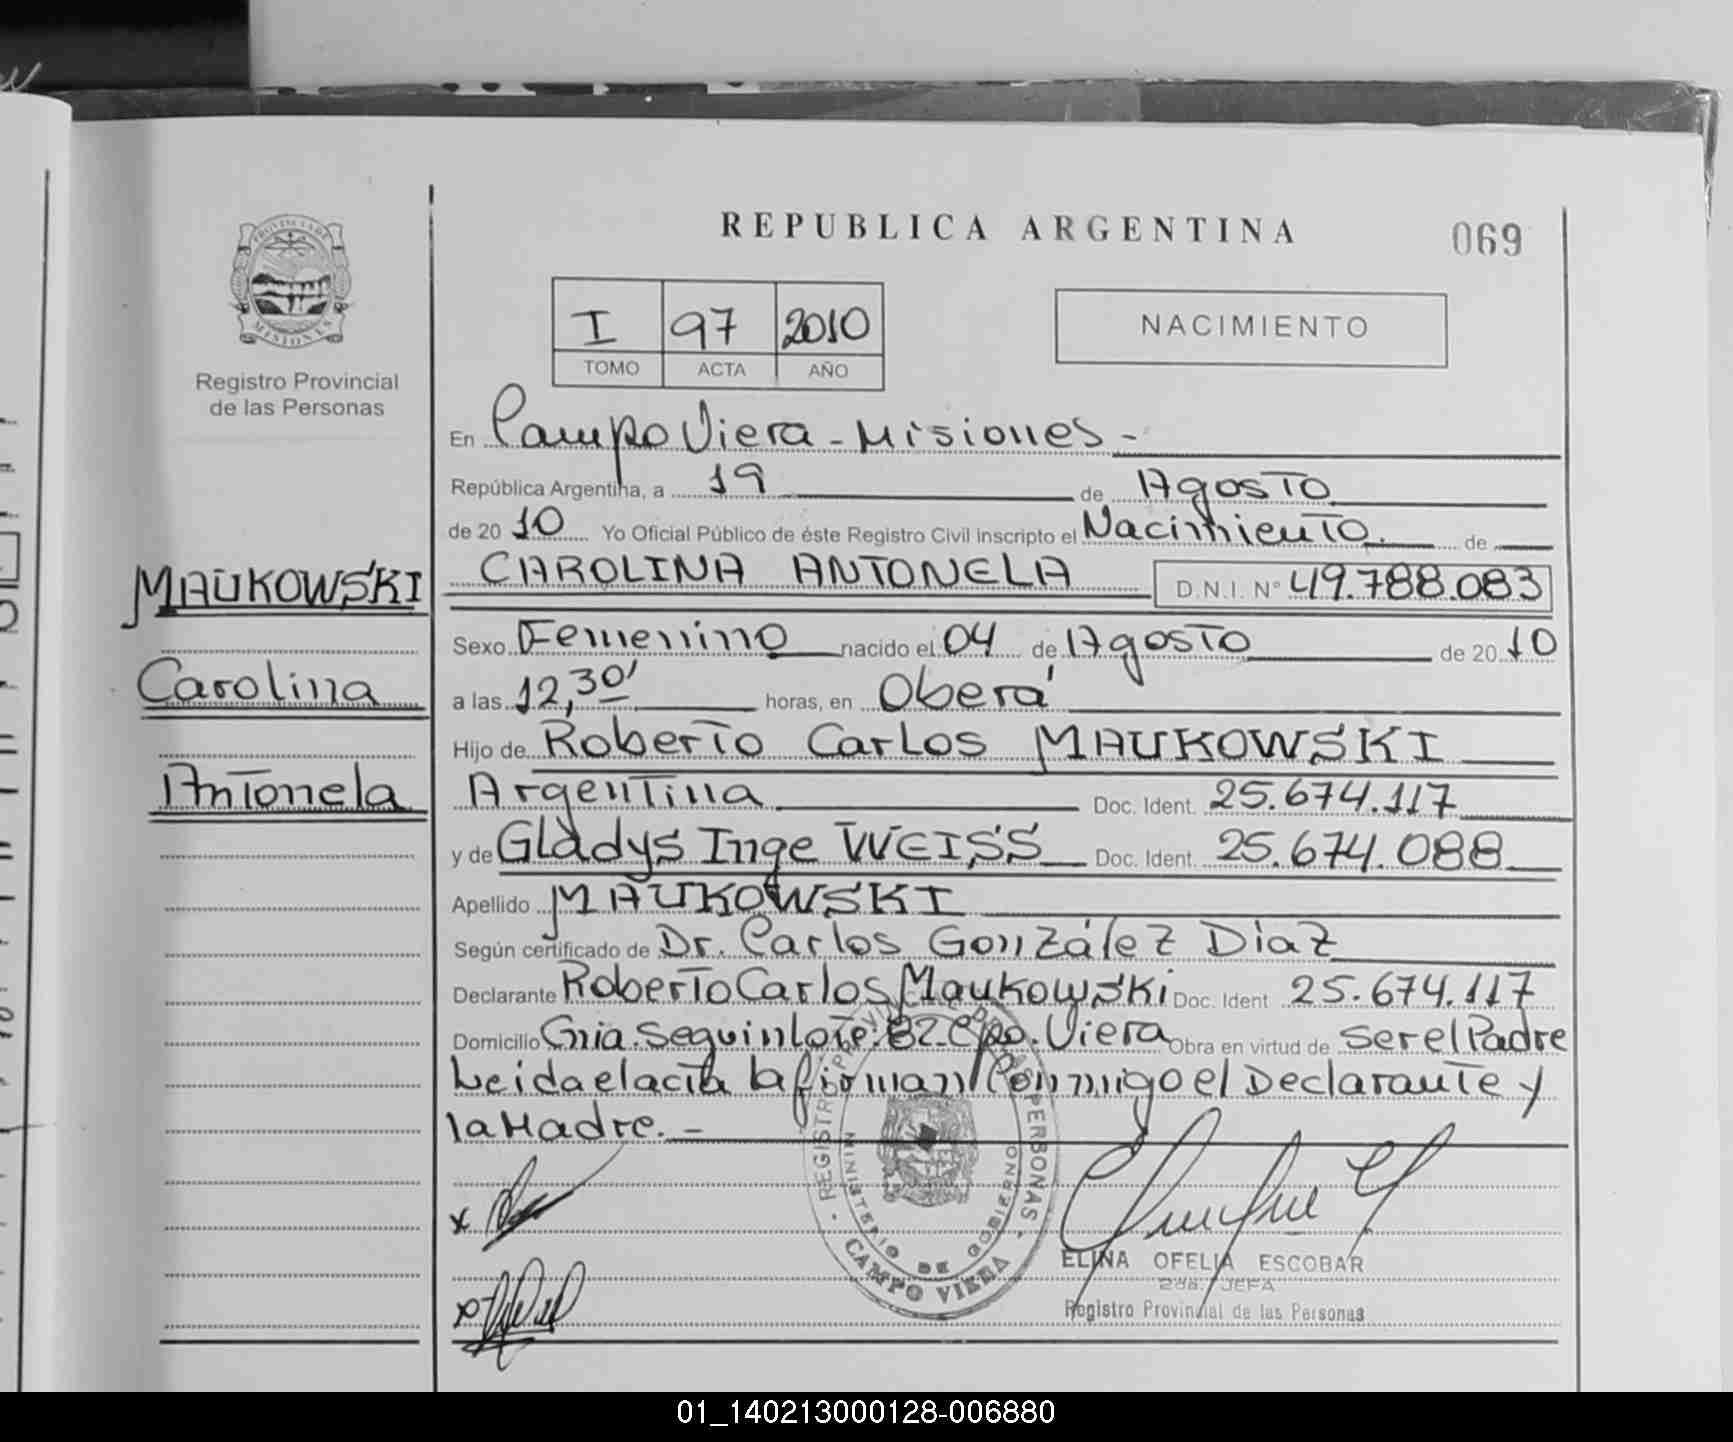 REPUBLICA ARGENTINA
069
PROVINCIA DE MISIONES
Registro Provincial
de las Personas
I 97 2010
TOMO ACTA AÑO
NACIMIENTO
En Campo Viera - Misiones -
República Argentina, a 19 de Agosto
de 20 10 Yo Oficial Público de éste Registro Civil inscripto el Nacimiento. de
CAROLINA ANTONELA D.N.I. Nº 49.788.083
MAUKOWSKI
Carolina
Antonela
Sexo Femenino nacido el 04 de Agosto de 20 10
a las 12,30' horas, en Oberá
Hijo de Roberto Carlos MAUKOWSKI
Argentina Doc. Ident. 25.674.117
y de Gladys Inge WEISS Doc. Ident. 25.674.088
Apellido MAUKOWSKI
Según certificado de Dr. Carlos González Diaz
Declarante Roberto Carlos Maukowski Doc. Ident 25.674.117
Domicilio Cnia. Seguin lote. 82 - Cpo. Viera Obra en virtud de ser el Padre
Leida el acta la firman conmigo el Declarante y
la Madre. -
REGISTRO PROVINCIAL DE LAS PERSONAS
MINISTERIO DE GOBIERNO
CAMPO VIERA
ELINA OFELIA ESCOBAR
2da. JEFA
Registro Provincial de las Personas
01_140213000128-006880